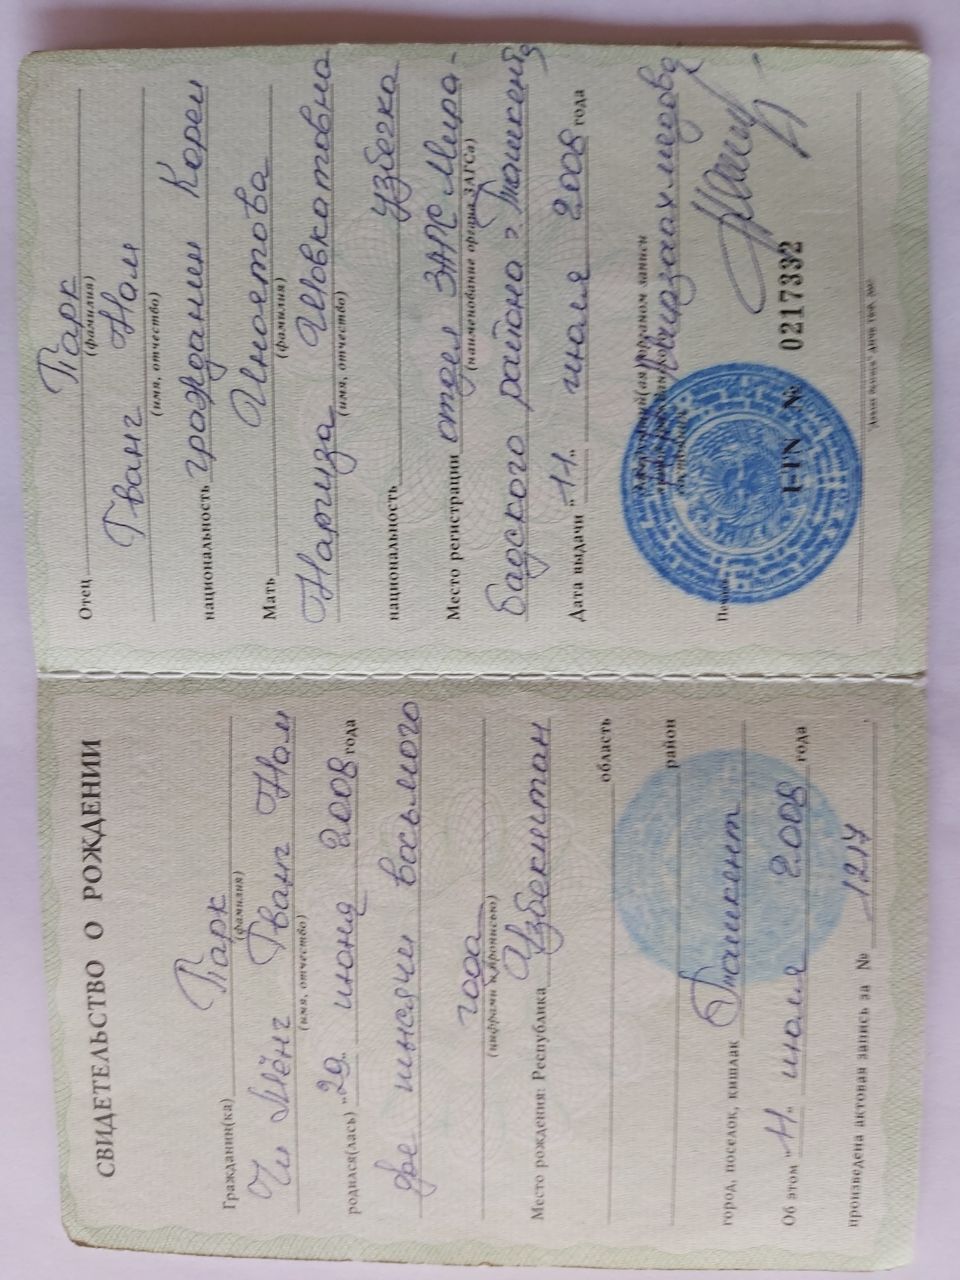 СВИДЕТЕЛЬСТВО О РОЖДЕНИИ
Гражданин(ка) Парк
(фамилия)
Чи Мёнг Гванг Нам
(имя, отчество)
родился(лась) „29„ июня 2008 года
две тысячи восьмого
года
(цифрами и прописью)
Место рождения: Республика Узбекитан
область
район
город, поселок, кишлак Ташкент
Об этом "11„ июля 2008 года
произведена актовая запись за № 1217
Отец Парк
(фамилия)
Гванг Нам
(имя, отчество)
национальность гражданин Кореи
Мать Иноетова
(фамилия)
Наргиза Шовкатовна
(имя, отчество)
национальность узбечка
Место регистрации отдел ЗАГС Мира-
(наименование органа ЗАГСа)
бадского района г. Ташкента
Дата выдачи "11„ июля 2008 года
Мирзаахмедова
Печать
I-TN № 0217332